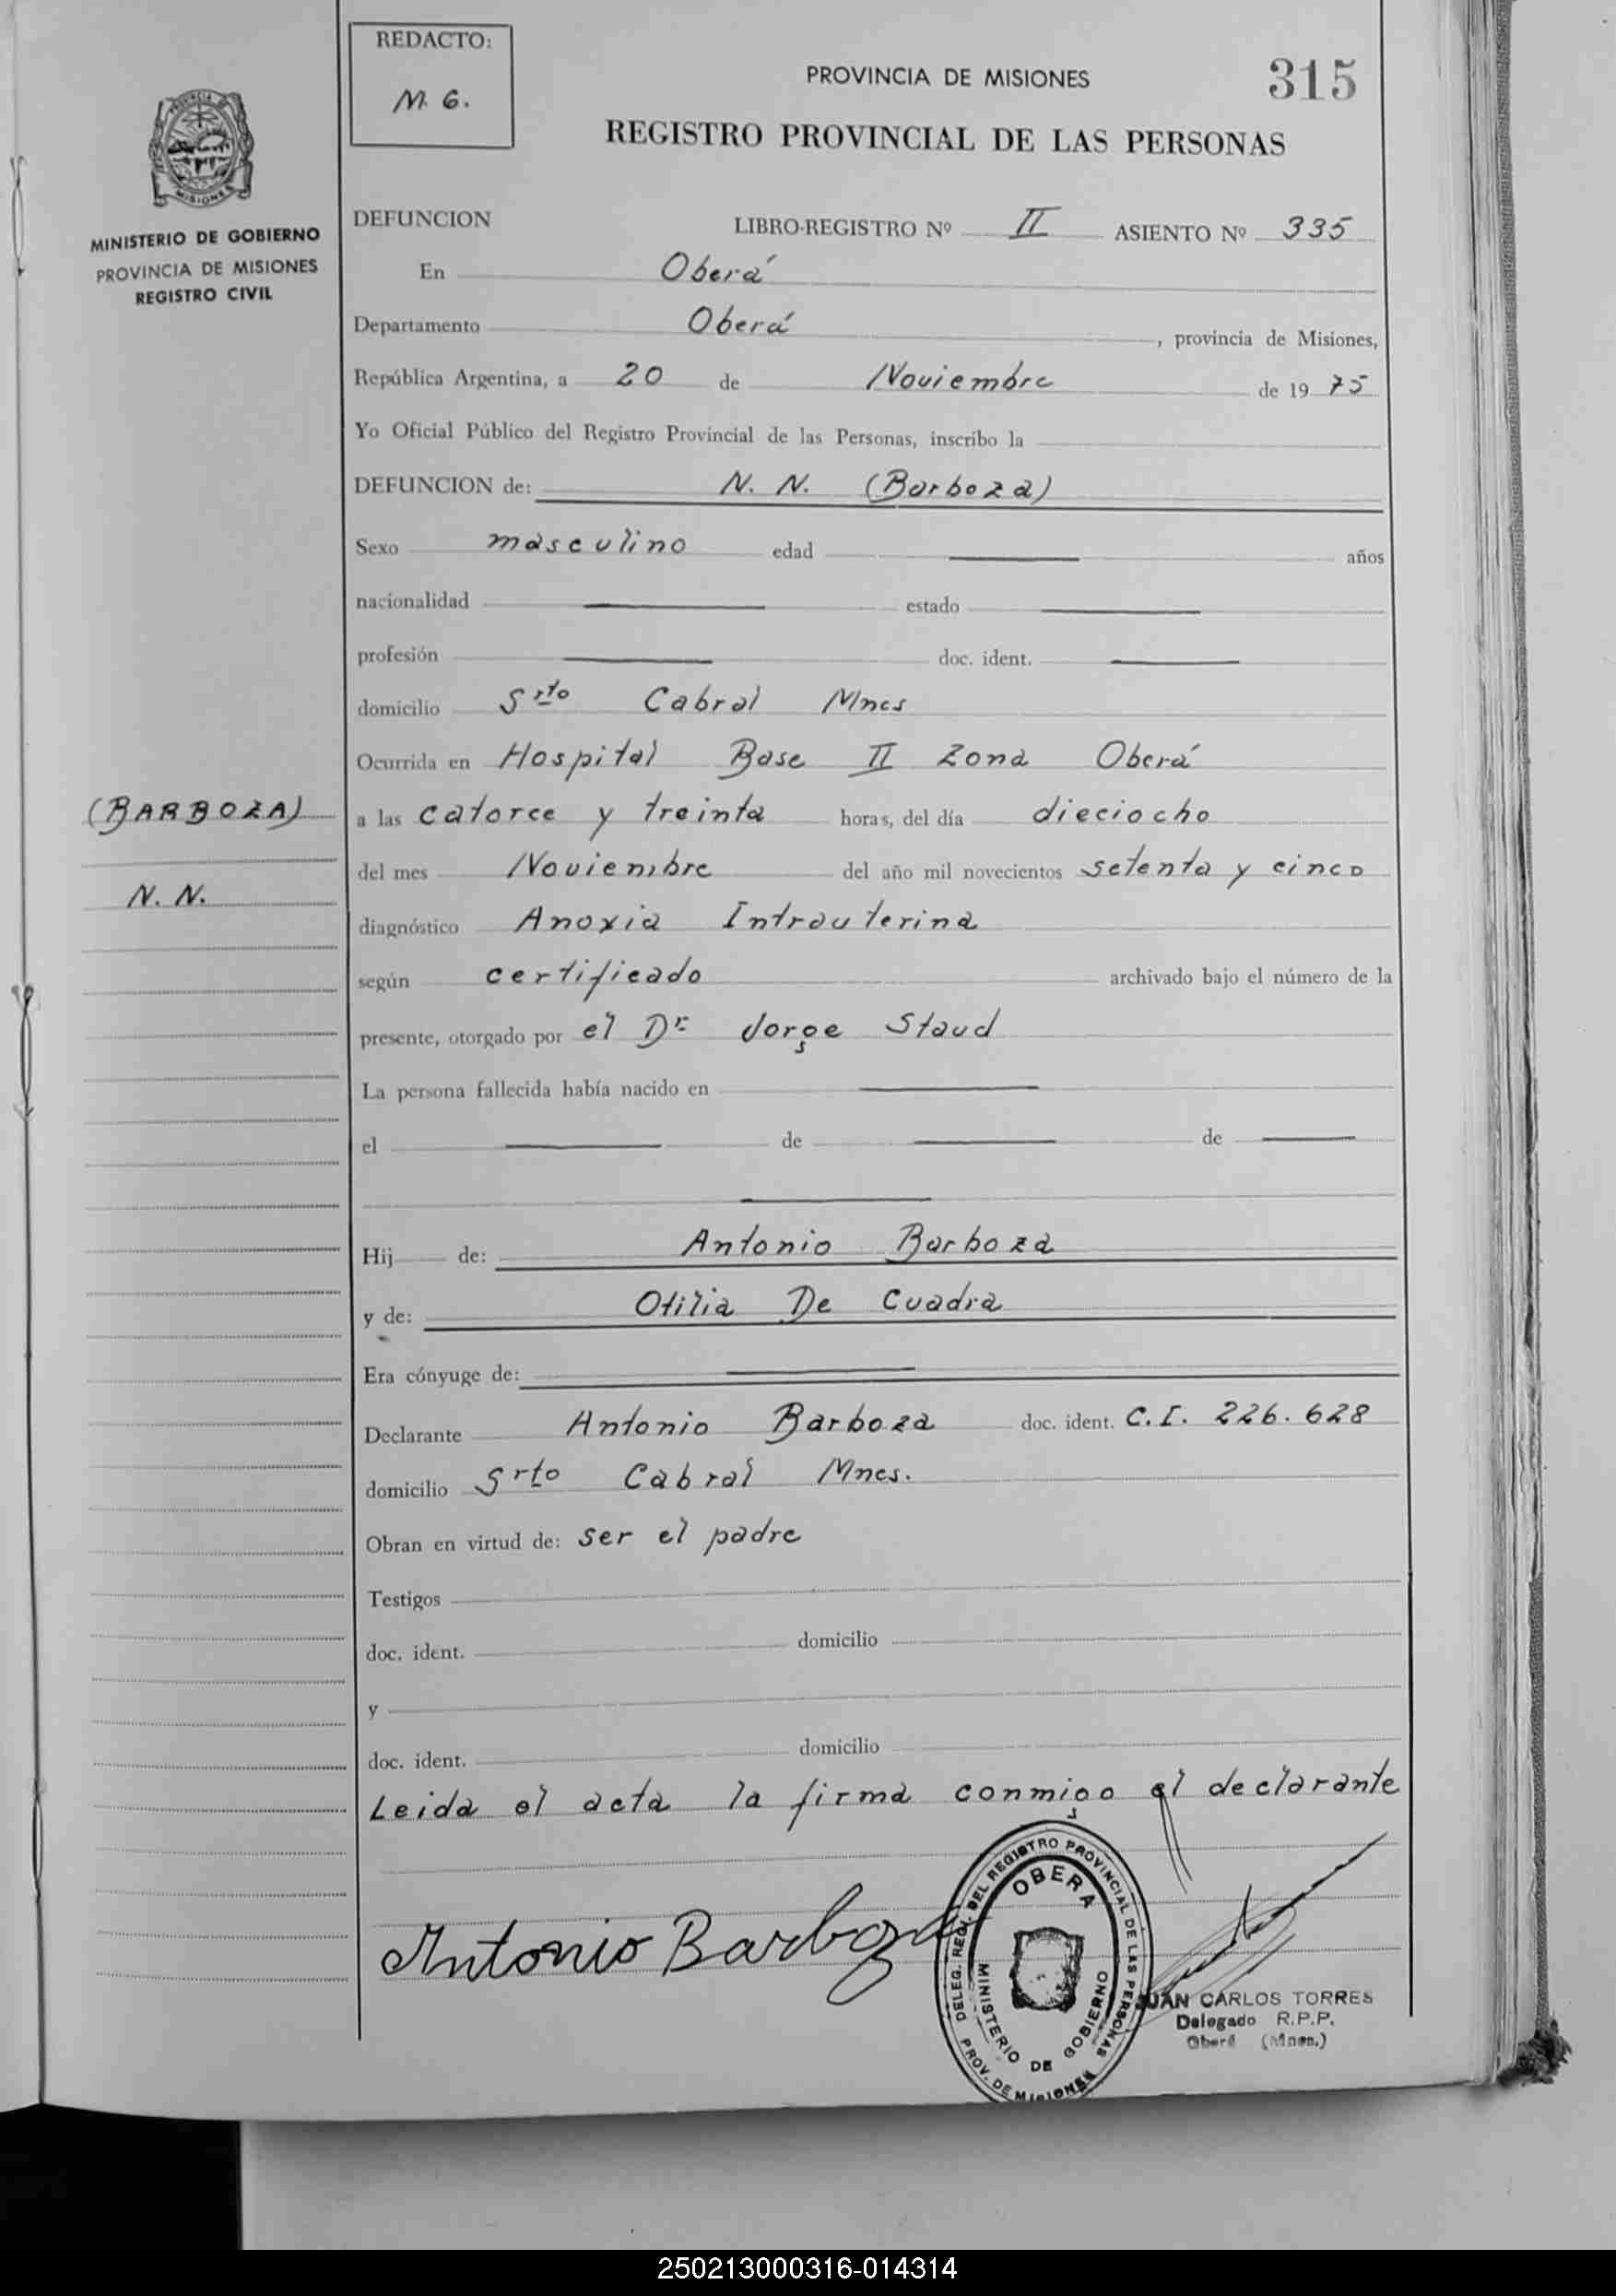 REDACTO:
M. G.
PROVINCIA DE MISIONES
315
REGISTRO PROVINCIAL DE LAS PERSONAS
PROVINCIA DE
MISIONES
MINISTERIO DE GOBIERNO
PROVINCIA DE MISIONES
REGISTRO CIVIL
DEFUNCION LIBRO-REGISTRO Nº II ASIENTO Nº 335
En Oberá
Departamento Oberá, provincia de Misiones,
República Argentina, a 20 de Noviembre de 19 75
Yo Oficial Público del Registro Provincial de las Personas, inscribo la
DEFUNCION de: N. N. (Barboza)
Sexo masculino edad años
nacionalidad estado
profesión doc. ident.
domicilio Srto Cabral Mnes
Ocurrida en Hospital Base II Zona Oberá
(BARBOZA)
a las catorce y treinta horas, del día dieciocho
del mes Noviembre del año mil novecientos setenta y cinco
N. N.
diagnóstico Anoxia Intrauterina
según certificado archivado bajo el número de la
presente, otorgado por el Dr Jorge Staud
La persona fallecida había nacido en
el de de
Hij de: Antonio Barboza
y de: Otilia De Cuadra
Era cónyuge de:
Declarante Antonio Barboza doc. ident. C.I. 226.628
domicilio Srto Cabral Mnes.
Obran en virtud de: ser el padre
Testigos
doc. ident. domicilio
y
doc. ident. domicilio
Leida el acta la firma conmigo el declarante
Antonio Barboza
DELEG. REGL. DEL REGISTRO PROVINCIAL DE LAS PERSONAS
OBERA
MINISTERIO DE GOBIERNO
PROV. DE MISIONES
JUAN CARLOS TORRES
Delegado R.P.P.
Oberá (Mnes.)
250213000316-014314